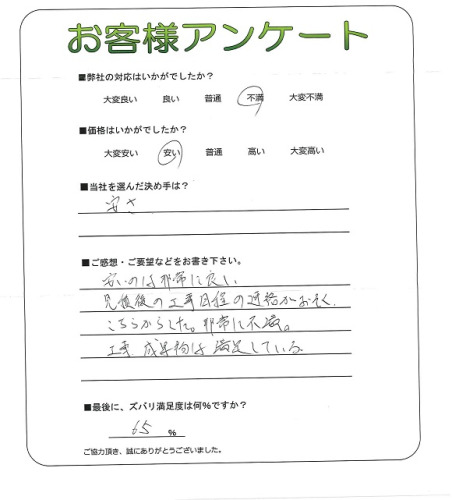 お客様アンケート
■弊社の対応はいかがでしたか?
大変良い 良い 普通 不満 大変不満
■価格はいかがでしたか?
大変安い 安い 普通 高い 大変高い
■当社を選んだ決め手は?
安さ
■ご感想・ご要望などをお書き下さい。
安いのは非常に良い
見積後の工事日程の連絡がおそく、
こちらからした。非常に不満。
工事、成果物は満足している
■最後に、ズバリ満足度は何%ですか?
65 %
ご協力頂き、誠にありがとうございました。